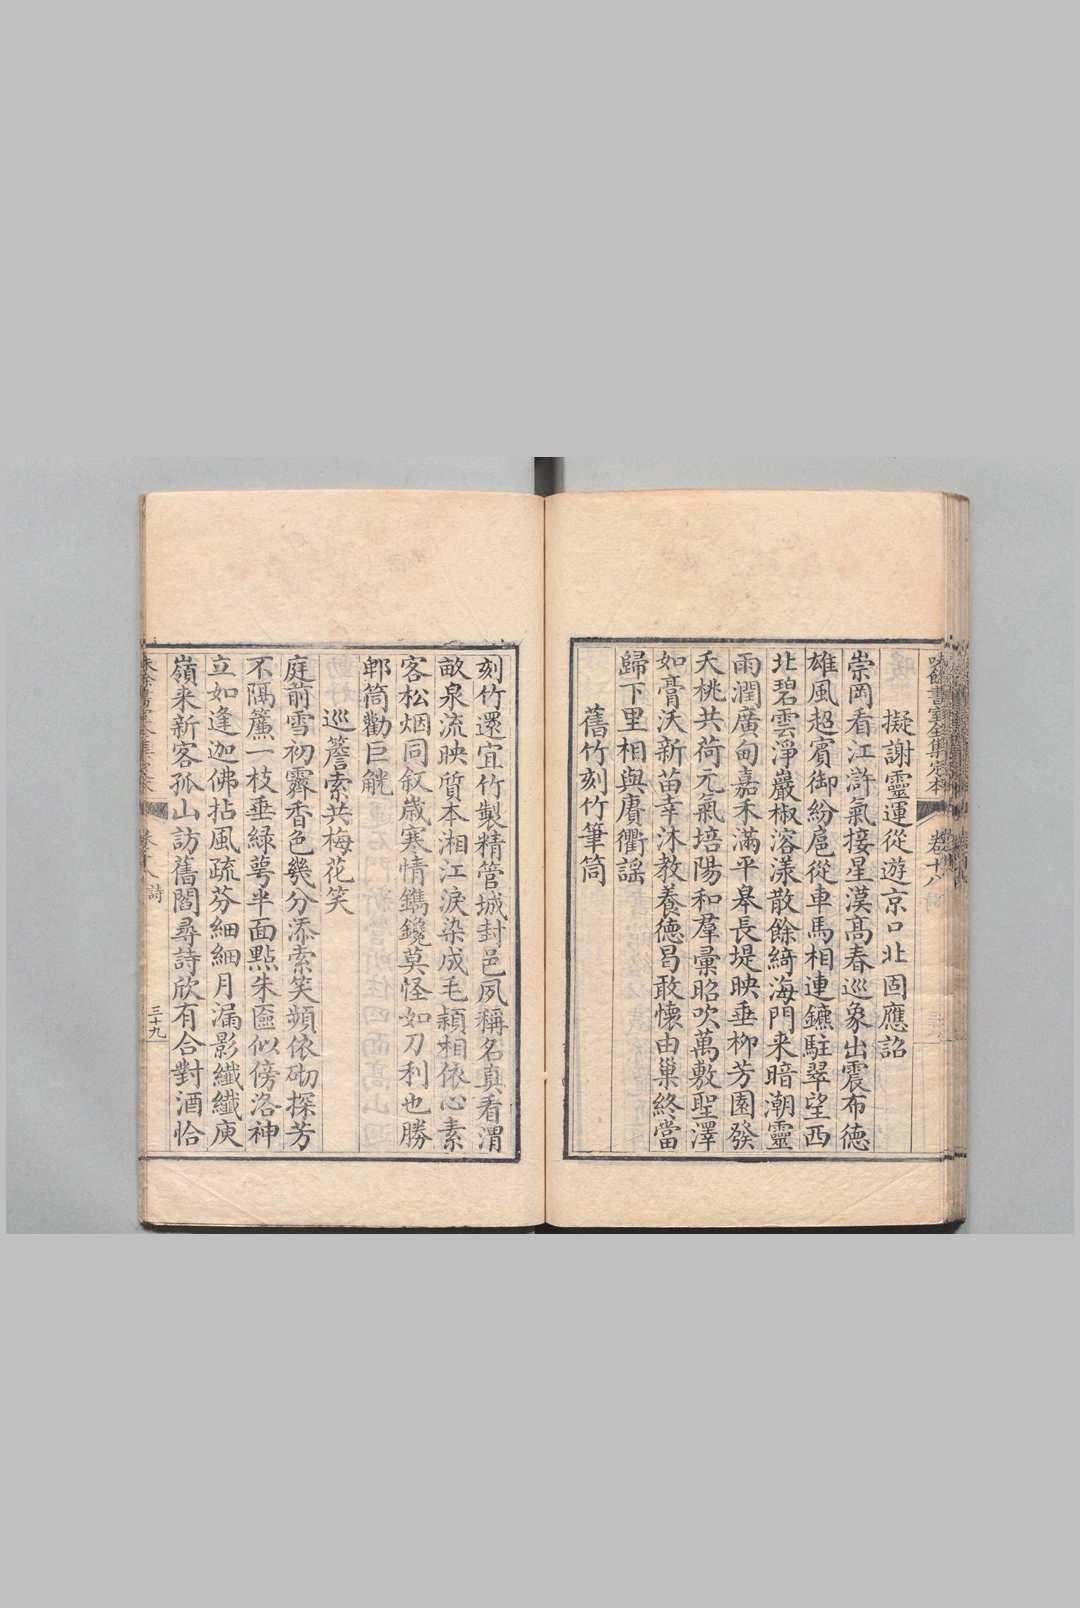 擬謝靈運從遊京口北固應詔
崇岡看江滸氣接星漢高春巡象出震布德
雄風超賓御紛扈從車馬相連鑣駐翠望西
北碧雲淨巖椒溶漾散餘綺海門来暗潮靈
雨潤廣甸嘉禾滿平皋長堤映垂柳芳園發
夭桃共荷元氣培陽和羣彙昭吹萬敷聖澤
如膏沃新苗幸沐教養德曷敢懷由巢終當
歸下里相與賡衢謡
舊竹刻竹筆筒
刻竹還宜竹製精管城封邑夙稱名真看渭
畝泉流映質本湘江淚染成毛穎相依心素
客松烟同叙歲寒情鐫鑱莫怪如刀利也勝
郫筒勸巨觥
巡簷索共梅花笑
庭前雪初霽香色幾分添索笑頻依砌探芳
不隔簾一枝垂緑萼半面點朱匳似傍洛神
立如逢迦佛拈風疏芬細細月漏影纖纖庾
嶺来新客孤山訪舊閻尋詩欣有合對酒恰
味餘書室全集定本 卷十八 詩 三十九